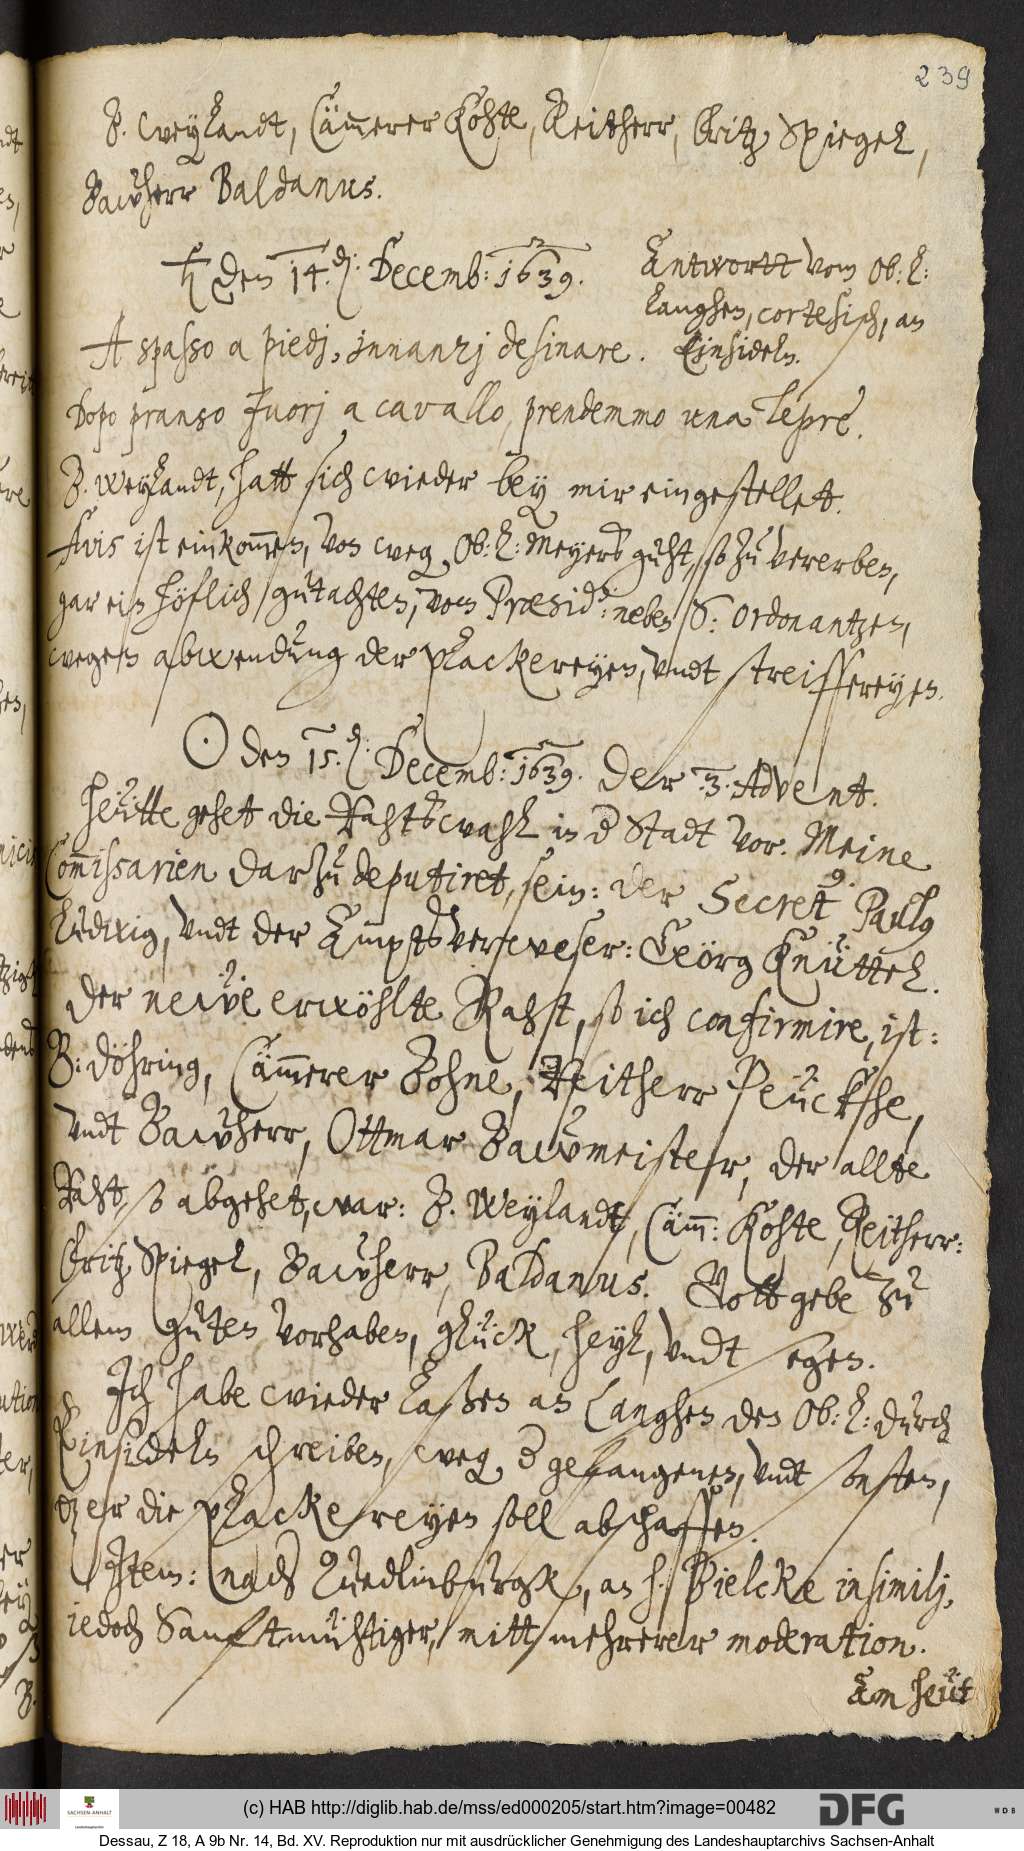 239
B. Weylandt, Cämmerer Kohte, Reitherr, Fritz Spiegel,
Bawherr Baldanus.
♄ den 14. Decemb: 1639.
Antwortt vom Ob: L:
Langhen, cortesisch, an
Einsideln.
A spasso a piedj, innanzj desinare.
Dopo pranso fuorj a cavallo, prendemmo una lepre.
B. Weylandt, hatt sich wieder bey mir eingestellet.
Avis ist einkommen, von weg. Ob: L: Meyers guht, so zu vererben,
gar ein höflich gutachten, vom Præsid: neben S: ordonantzen,
wegen abwendung der plackereyen, vndt streiffereyen.
☉ den 15. Decemb: 1639. Der .3. Advent.
Heütte gehet die Rahtswahl in d Stadt vor. Meine
Commissarien darzu deputiret, sein: der Secret. Paulus
Ludwig, vndt der Ampts verweser: Geörg Knüttel.
Der newe erwöhlte Raht, so ich confirmire, ist:
B: Döhring, Cämmerer Bohne, Reitherr Peückhe,
vndt Bawherr, Ottmar Bawmeister, der allte
Raht, so abgehet, war: B. Weylandt, Cämm: Kohte, Reitherr:
Fritz Spiegel, Bawherr, Baldanus. Gott gebe zu
allem guten vorhaben, glück, heyl, vndt segen.
Ich habe wieder laßen an Langhen den Ob: L: durch
Einsideln schreiben, weg. d gefangenen, vndt sonsten,
dz er die plackereyen soll abschaffen.
Item: nach Quedlinburgk, an H. Bielcke in similj,
iedoch Sanftmühtiger, mitt mehrerer moderation.
Am heüt
(c) HAB http://diglib.hab.de/mss/ed000205/start.htm?image=00482
SACHSEN-ANHALT
DFG
WDB
Dessau, Z 18, A 9b Nr. 14, Bd. XV. Reproduktion nur mit ausdrücklicher Genehmigung des Landeshauptarchivs Sachsen-Anhalt